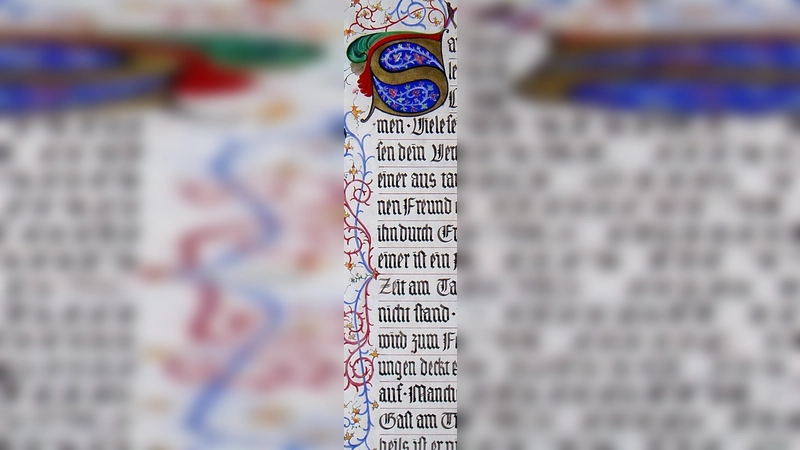 S
men · Viele se
sen dein Vert
einer aus ta
nen Freund
ihn durch Er
einer ist ein
Zeit am Ta
nicht stand ·
wird zum Fe
ungen deckt e
auf · Manch
Gast am Ti
heils ist er